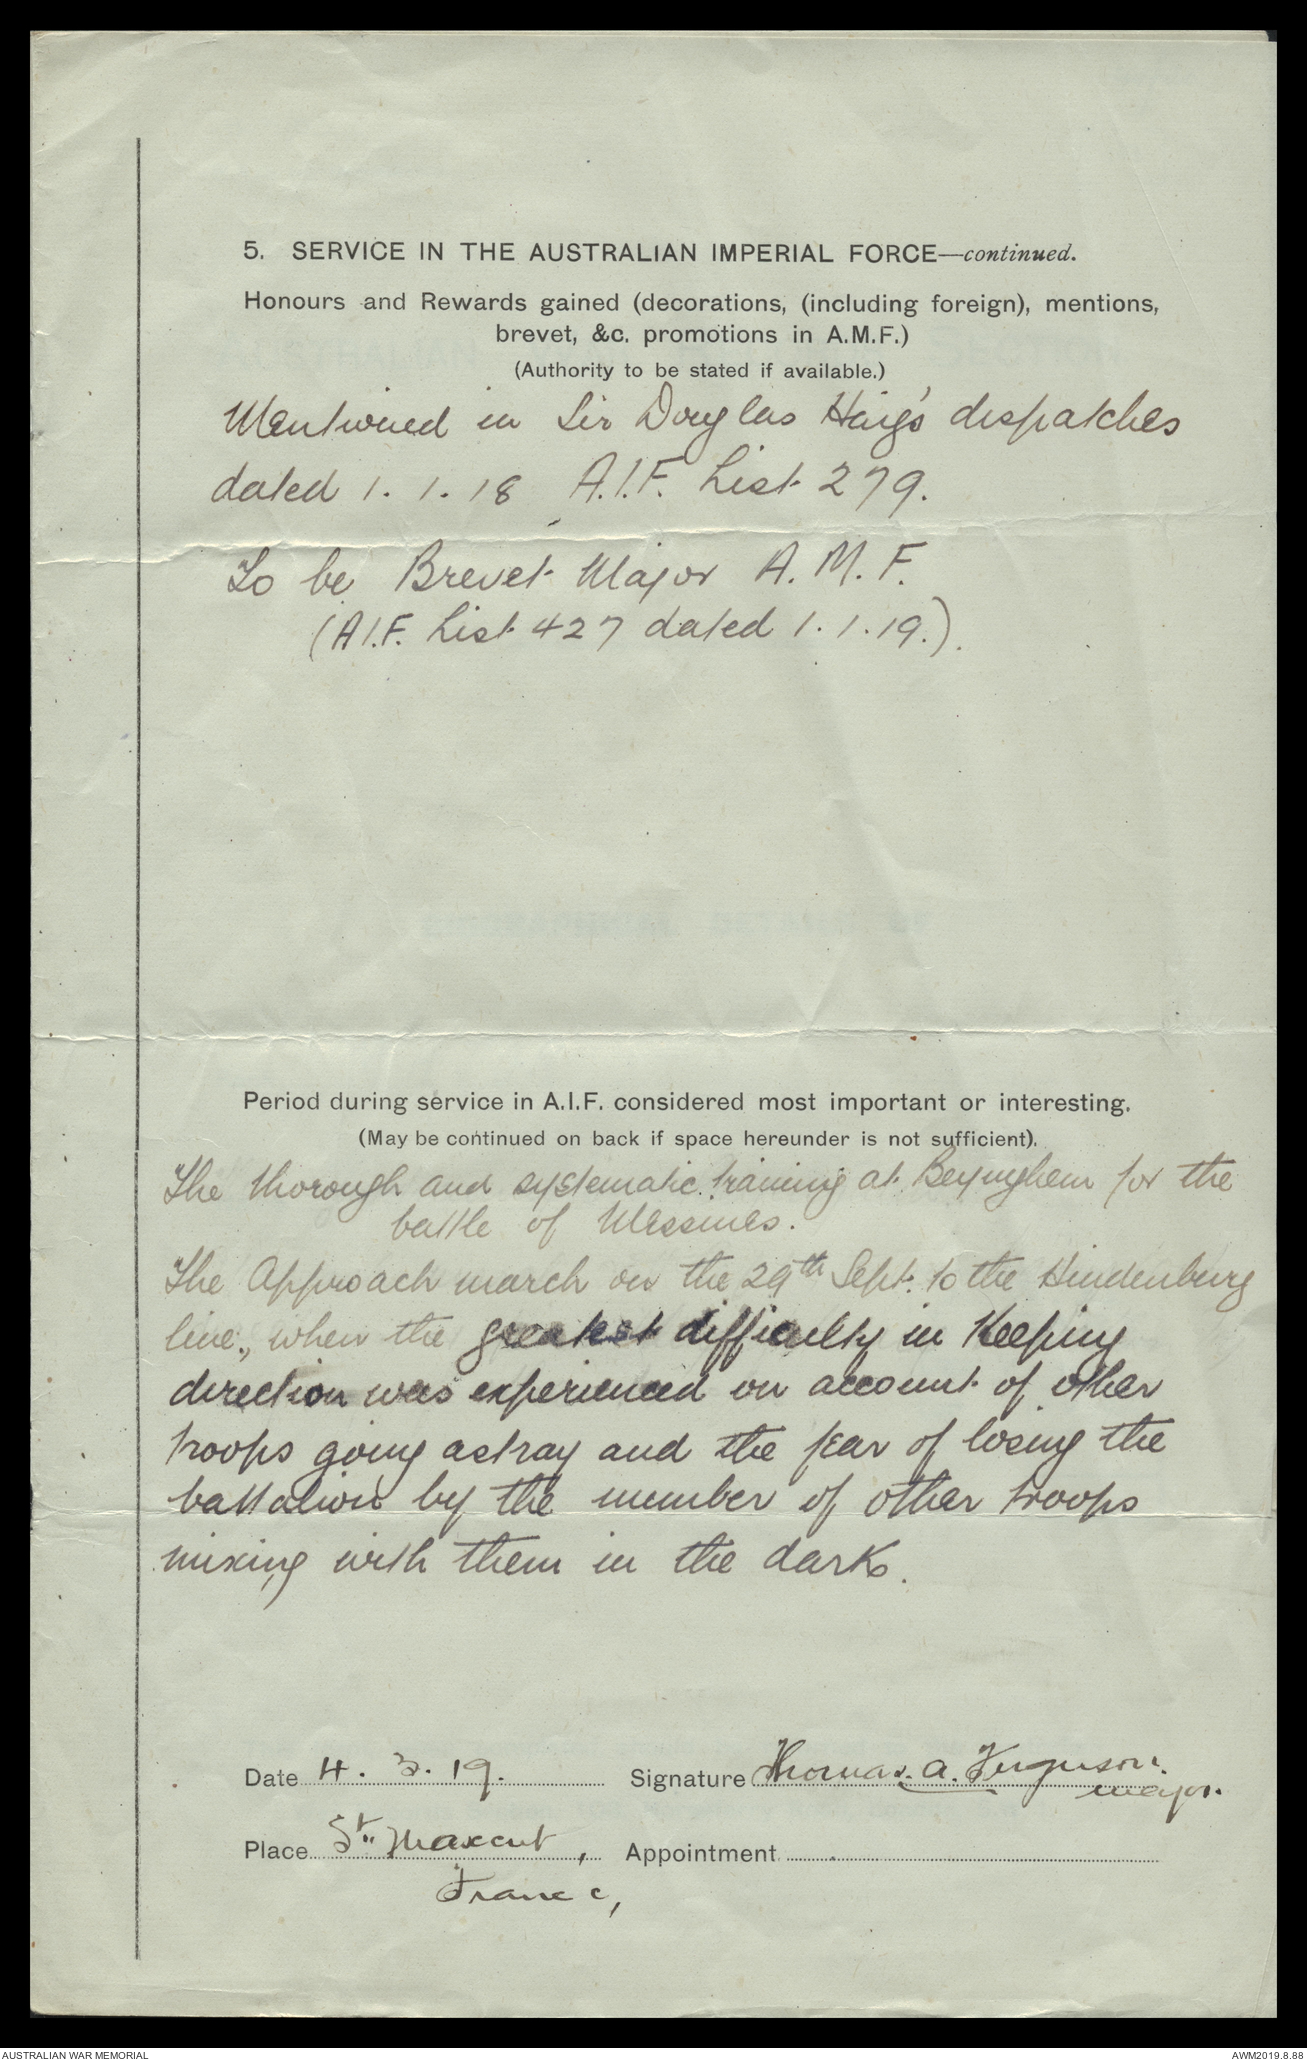 5. SERVICE IN THE AUSTRALIAN IMPERIAL FORCE—continued.
Honours and Rewards gained (decorations, (including foreign), mentions,
brevet, &c. promotions in A.M.F.)
(Authority to be stated if available.)
Mentioned in Sir Douglas Haig's dispatches
dated 1.1.18 A.I.F. List 279.
To be Brevet Major A.M.F.
(A.I.F. List 427 dated 1.1.19.).
Period during service in A.I.F. considered most important or interesting.
(May be continued on back if space hereunder is not sufficient).
The thorough and systematic training at for the
battle of Messines.
The Approach march on the 29th Sept. to the Hindenburg
line, when the greatest difficulty in Keeping
direction was experienced on account of other
troops going astray and the fear of losing the
battalion by the number of other troops
mixing with them in the dark.
Date 4.3.19. Signature Thomas. A. Ferguson.
major.
Place St. Maxent, Appointment
France,
AUSTRALIAN WAR MEMORIAL
AWM2019.8.88